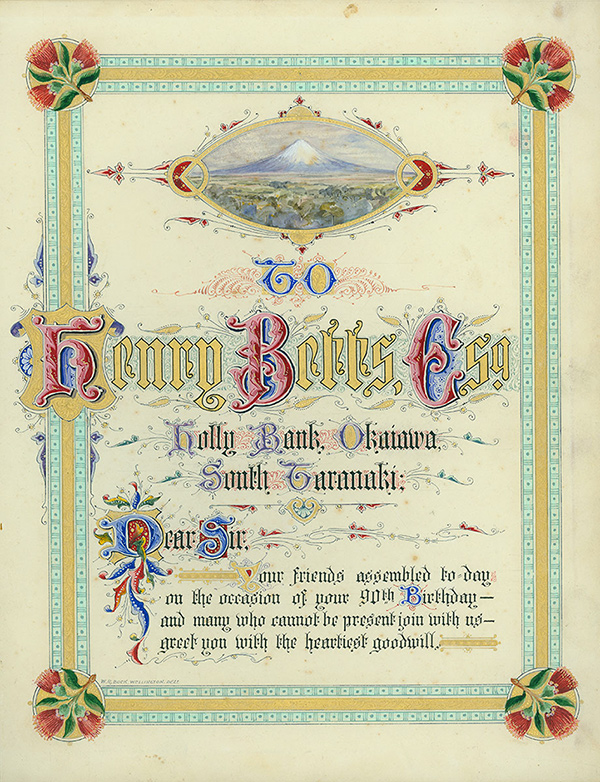 To
Henry Betts, Esq.
Holly Bank, Okaiawa,
South Taranaki.
Dear Sir,
Your friends assembled to-day
on the occasion of your 90th Birthday—
and many who cannot be present join with us—
greet you with the heartiest goodwill.
WELLINGTON